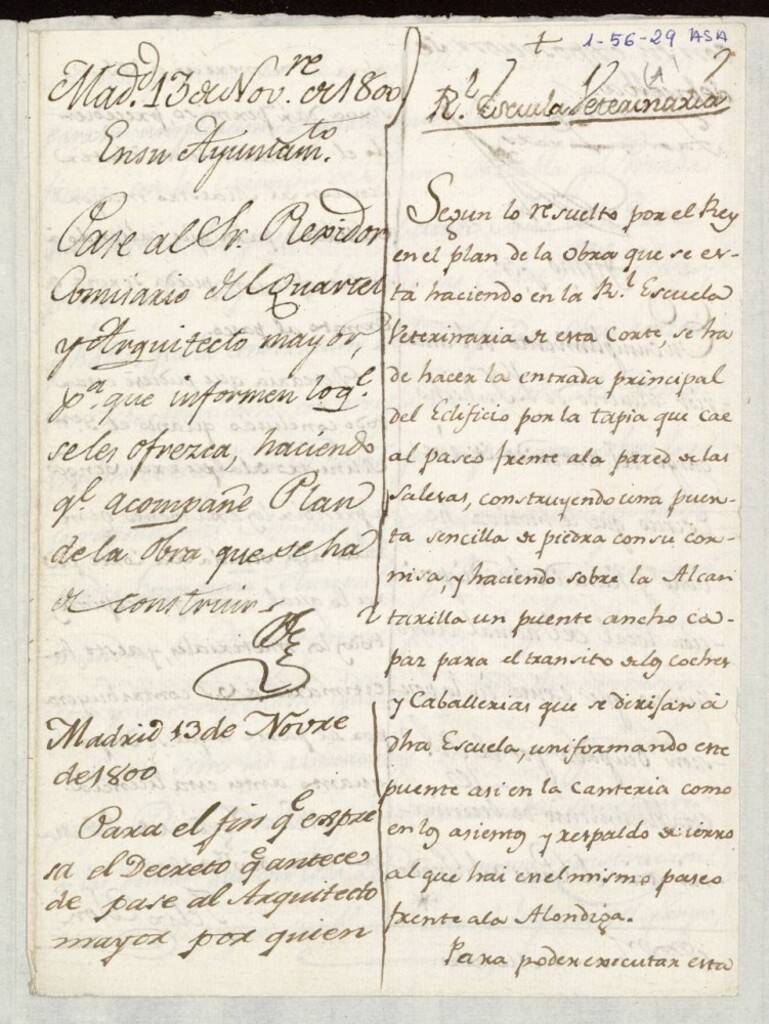 1-56-29 ASA
+
Madd. 13 de Novre. de 1800
En su Ayuntamto.
Pase al Sr. Rexidor
Comisario del Quartel
y Arquitecto mayor,
pa. que informen lo qe.
se les ofrezca, haciendo
qe. acompañe Plan
de la obra que se ha
de construir.
Madrid 13 de Novre
de 1800
Para el fin qe expre
sa el Decreto qe antece
de pase al Arquitecto
mayor por quien
Rl. Escuela Veterinaria
Segun lo resuelto por el Rey
en el plan de la Obra que se es-
tá haciendo en la Rl. Escuela
Veterinaria de esta Corte, se ha
de hacer la entrada principal
del Edificio por la tapia que cae
al paseo frente a la pared de las
Salesas, construyendo una puer-
ta sencilla de piedra con su cor-
nisa, y haciendo sobre la Alcan
tarilla un puente ancho ca-
paz para el transito de los coches
y Caballerias que se dirijan á
dha Escuela, uniformando este
puente asi en la Canteria como
en los asientos y respaldo de ierro
al que hai en el mismo paseo
frente a la Alondiga.
Para poder executar esta